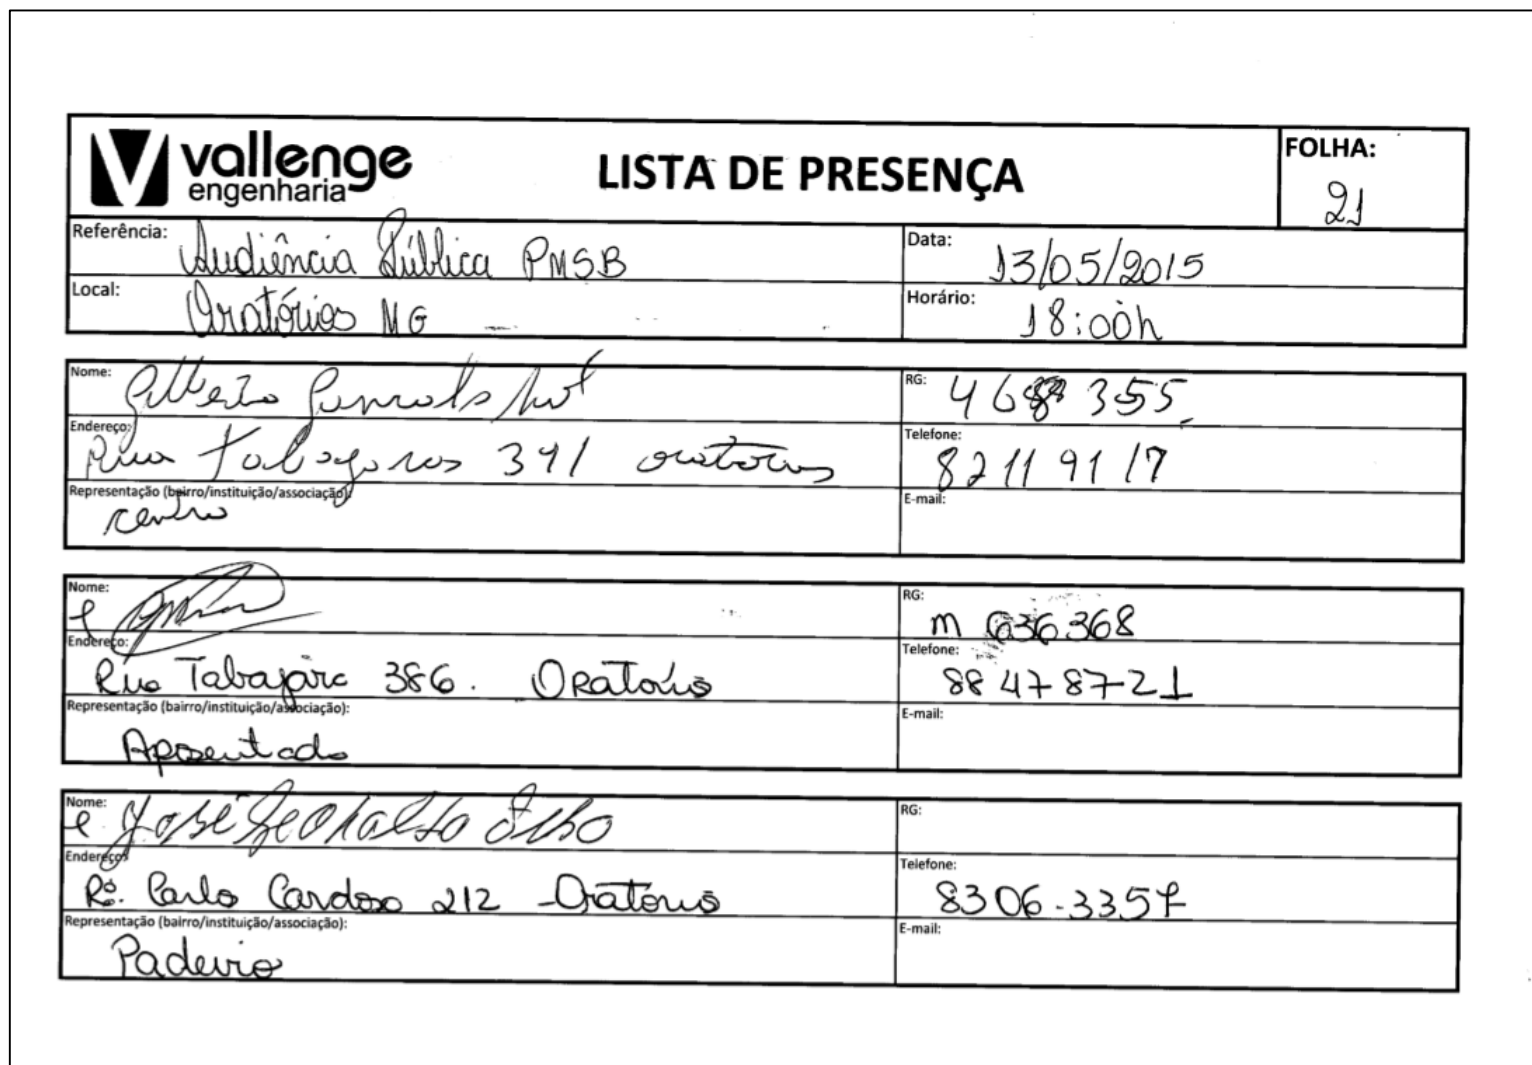 vallenge
engenharia
LISTA DE PRESENÇA
FOLHA:
21
Referência: Audiência Pública PMSB
Data: 13/05/2015
Local: Oratórios MG
Horário: 18:00h
Nome: Gilberto
RG: 4688355
Endereço: Rua Tabajaras 391 oratorios
Telefone: 8211 9117
Representação (bairro/instituição/associação):
centro
E-mail:
Nome:
RG: m 636368
Endereço: Rua Tabajara 386. Oratorio
Telefone: 88 47 87-21
Representação (bairro/instituição/associação):
Aposentado
E-mail:
Nome: José Geonaldo
RG:
Endereço: Rº. Carlo Cardoso 212 - Oratorio
Telefone: 8306-3357
Representação (bairro/instituição/associação):
Padeiro
E-mail: